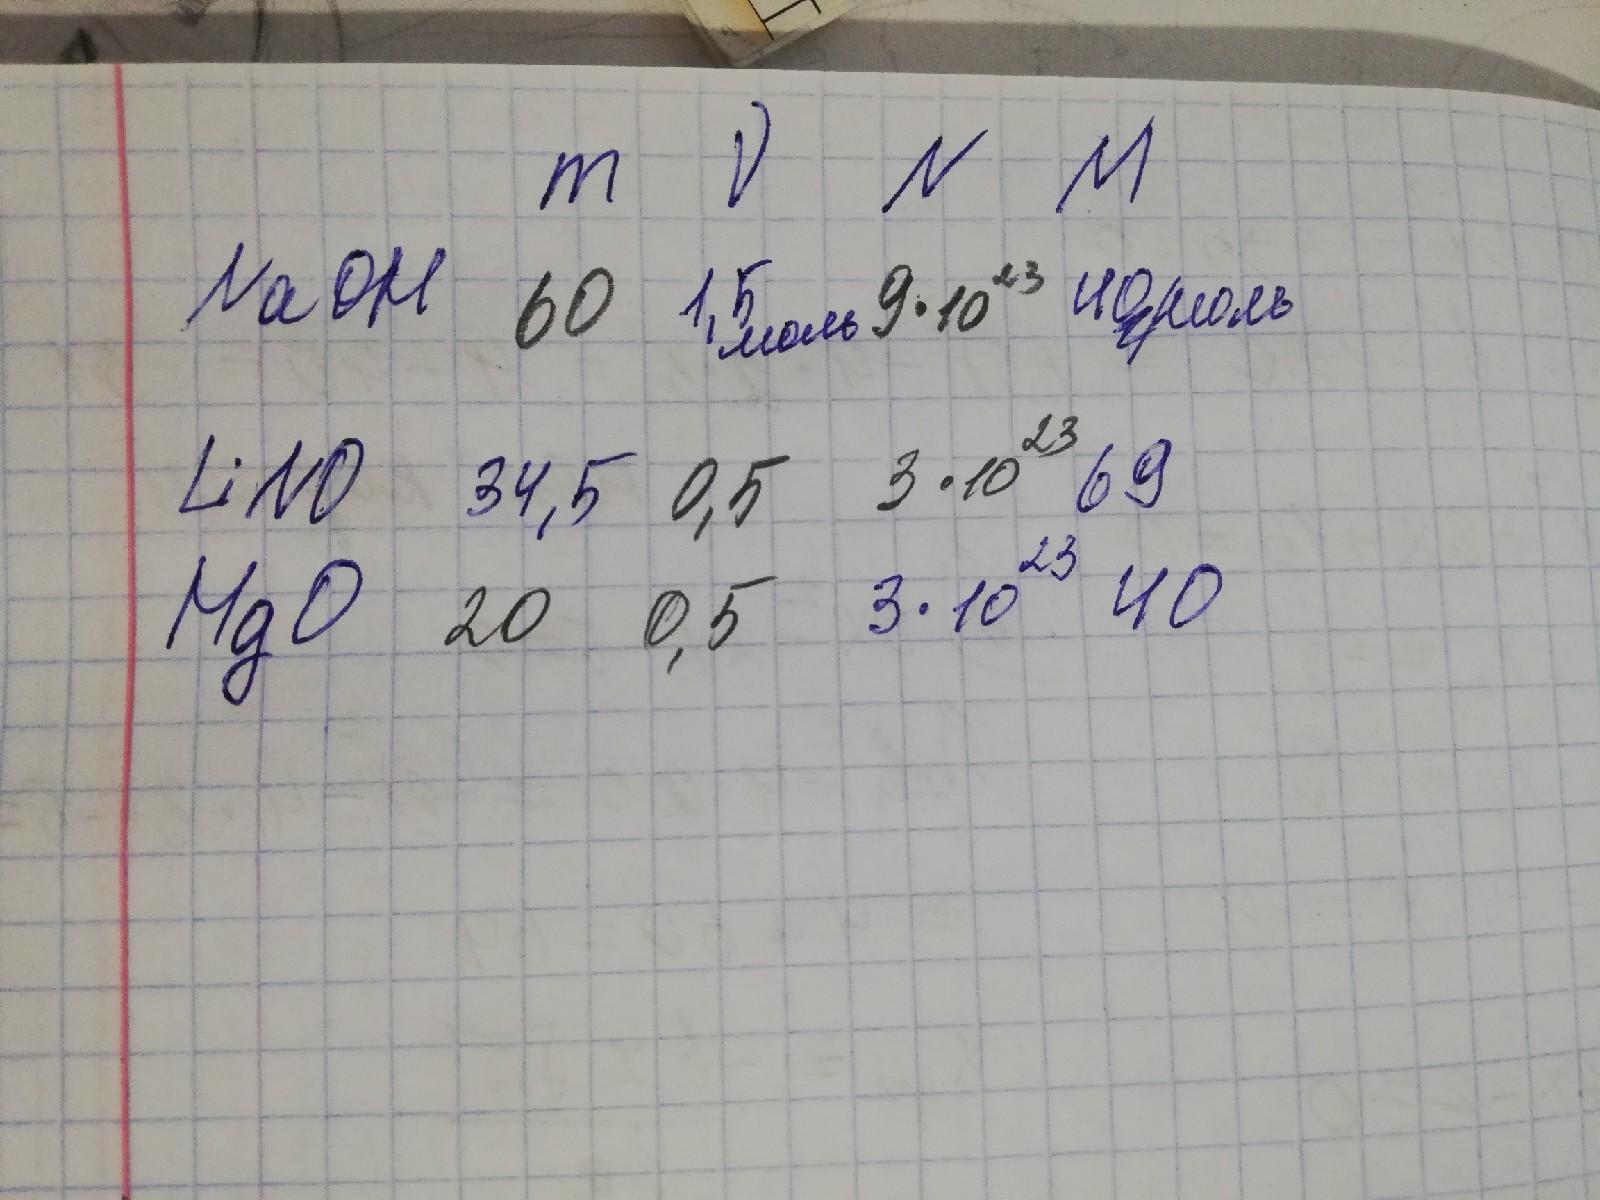 m ν N M
NaOH 60 1,5 моль 9·10²³ 40г/моль
LiNO 34,5 0,5 3·10²³ 69
MgO 20 0,5 3·10²³ 40